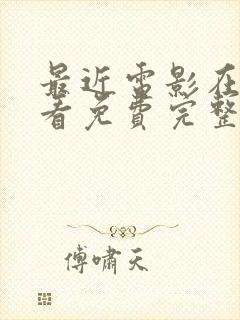 最近雷影在
看免费完整
傅啸天